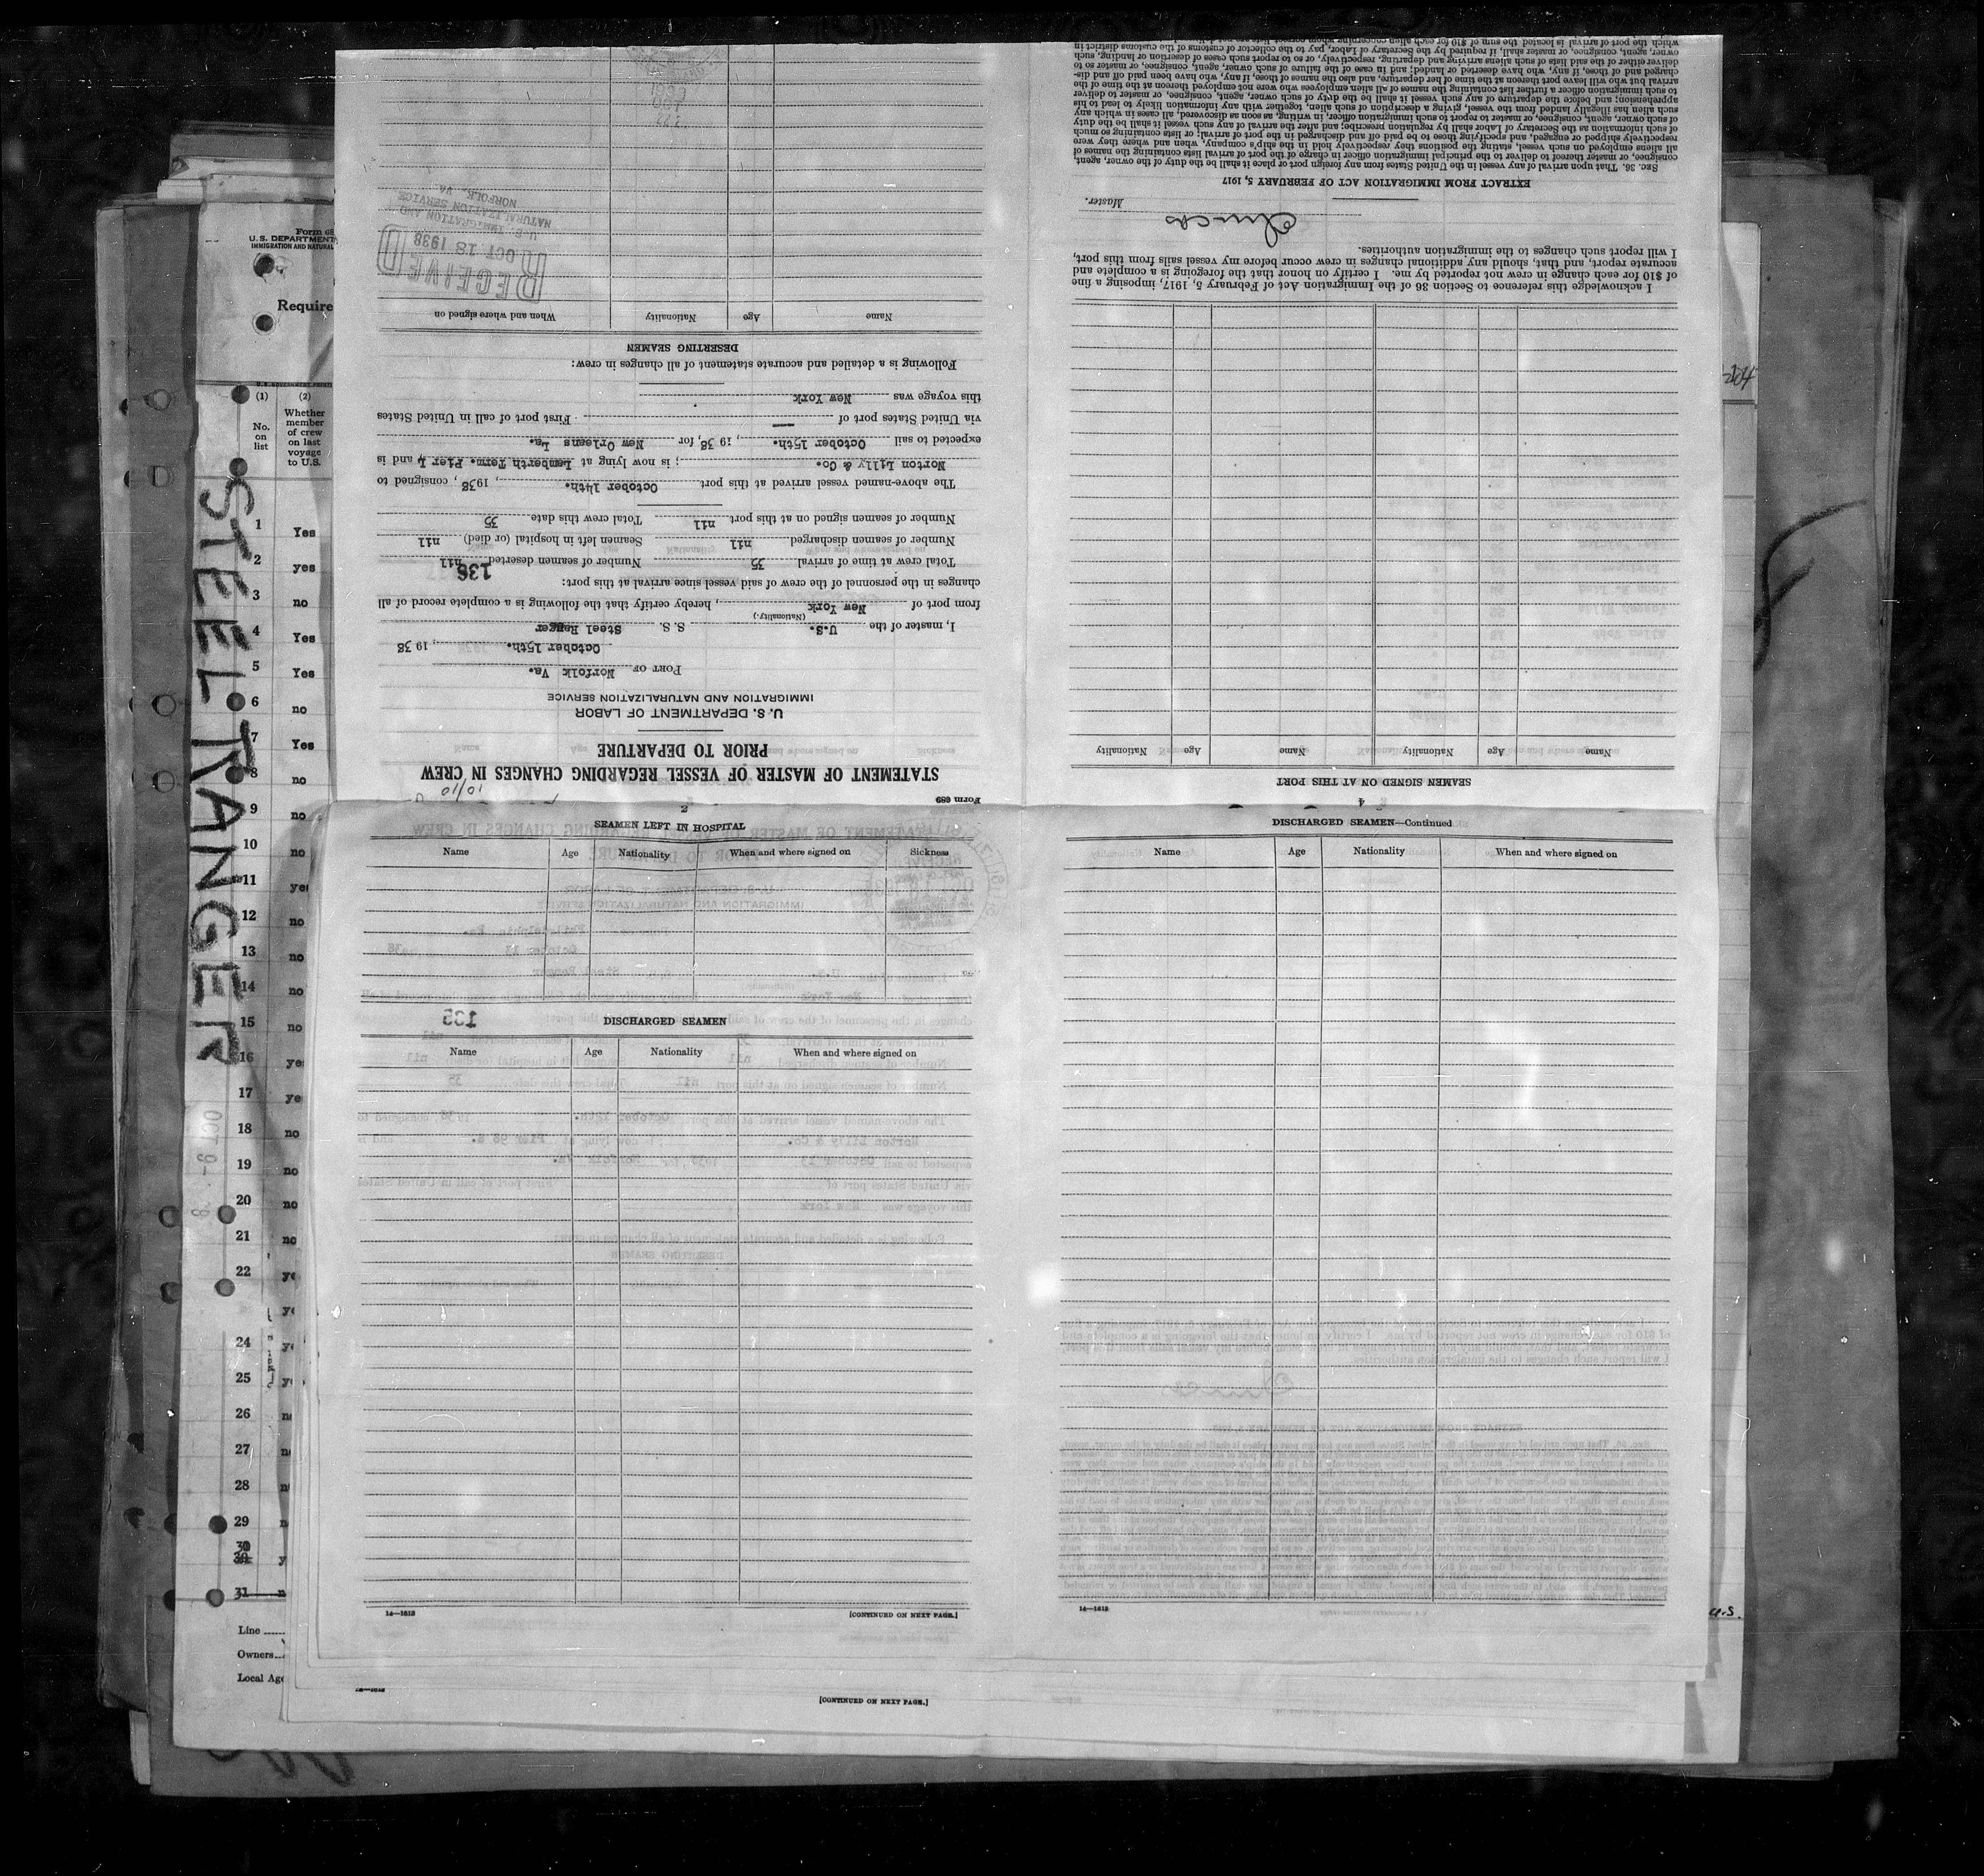 Form 689
STATEMENT OF MASTER OF VESSEL REGARDING CHANGES IN CREW
PRIOR TO DEPARTURE
U. S. DEPARTMENT OF LABOR
IMMIGRATION AND NATURALIZATION SERVICE
PORT OF Norfolk Va.
October 15th. , 19 38
I, master of the U.S. S. S. Steel Ranger
(Nationality.)
from port of New York , hereby certify that the following is a complete record of all
changes in the personnel of the crew of said vessel since arrival at this port:
136
Total crew at time of arrival 35 Number of seamen deserted nil
Number of seamen discharged nil Seamen left in hospital (or died) nil
Number of seamen signed on at this port nil Total crew this date 35
The above-named vessel arrived at this port October 14th. , 1938 , consigned to
Norton Lilly & Co. ; is now lying at Lamberth Term. Pier L and is
expected to sail October 15th. , 19 38, for New Orleans La.
via United States port of — First port of call in United States
this voyage was New York
Following is a detailed and accurate statement of all changes in crew:
DESERTING SEAMEN
Name Age Nationality When and where signed on
RECEIVED
OCT 18 1938
U. S. IMMIGRATION AND
NATURALIZATION SERVICE
NORFOLK, VA.
4
SEAMEN SIGNED ON AT THIS PORT
Name Age Nationality Name Age Nationality
I acknowledge this reference to Section 36 of the Immigration Act of February 5, 1917, imposing a fine
of $10 for each change in crew not reported by me. I certify on honor that the foregoing is a complete and
accurate report, and that, should any additional changes in crew occur before my vessel sails from this port,
I will report such changes to the immigration authorities.
Master.
EXTRACT FROM IMMIGRATION ACT OF FEBRUARY 5, 1917
SEC. 36. That upon arrival of any vessel in the United States from any foreign port or place it shall be the duty of the owner, agent,
consignee, or master thereof to deliver to the principal immigration officer in charge of the port of arrival lists containing the names of
all aliens employed on such vessel, stating the positions they respectively hold in the ship's company, when and where they were
respectively shipped or engaged, and specifying those to be paid off and discharged in the port of arrival; or lists containing so much
of such information as the Secretary of Labor shall by regulation prescribe; and after the arrival of any such vessel it shall be the duty
of such owner, agent, consignee, or master to report to such immigration officer, in writing, as soon as discovered, all cases in which any
such alien has illegally landed from the vessel, giving a description of such alien, together with any information likely to lead to his
apprehension; and before the departure of any such vessel it shall be the duty of such owner, agent, consignee, or master to deliver
to such immigration officer a further list containing the names of all alien employees who were not employed thereon at the time of the
arrival but who will leave port thereon at the time of her departure, and also the names of those, if any, who have been paid off and dis-
charged and of those, if any, who have deserted or landed; and in case of the failure of such owner, agent, consignee, or master so to
deliver either of the said lists of such aliens arriving and departing, respectively, or so to report such cases of desertion or landing, such
owner, agent, consignee, or master shall, if required by the Secretary of Labor, pay to the collector of customs of the customs district in
which the port of arrival is located the sum of $10 for each alien concerning whom correct lists are not
2
SEAMEN LEFT IN HOSPITAL
Name Age Nationality When and where signed on Sickness
DISCHARGED SEAMEN
Name Age Nationality When and where signed on
14—1812 [CONTINUED ON NEXT PAGE.]
DISCHARGED SEAMEN—Continued
Name Age Nationality When and where signed on
14—1812
[CONTINUED ON NEXT PAGE.]
Form 68
U. S. DEPARTMENT
IMMIGRATION AND NATURAL
Require
(1) (2)
No. on list
Whether member of crew on last voyage to U.S.
STEEL RANGER
1 Yes
2 yes
3 no
4 Yes
5 Yes
6 no
7 Yes
8 no
9 no
10 no
11 yes
12 no
13 no
14 no
15 no
16 yes
17 ye
18 no
19 no
20 no
21 no
22 ye
24 ye
25 y
26 n
27 n
28 n
29 n
30 y
31 n
Line
Owners
Local Age
U.S.